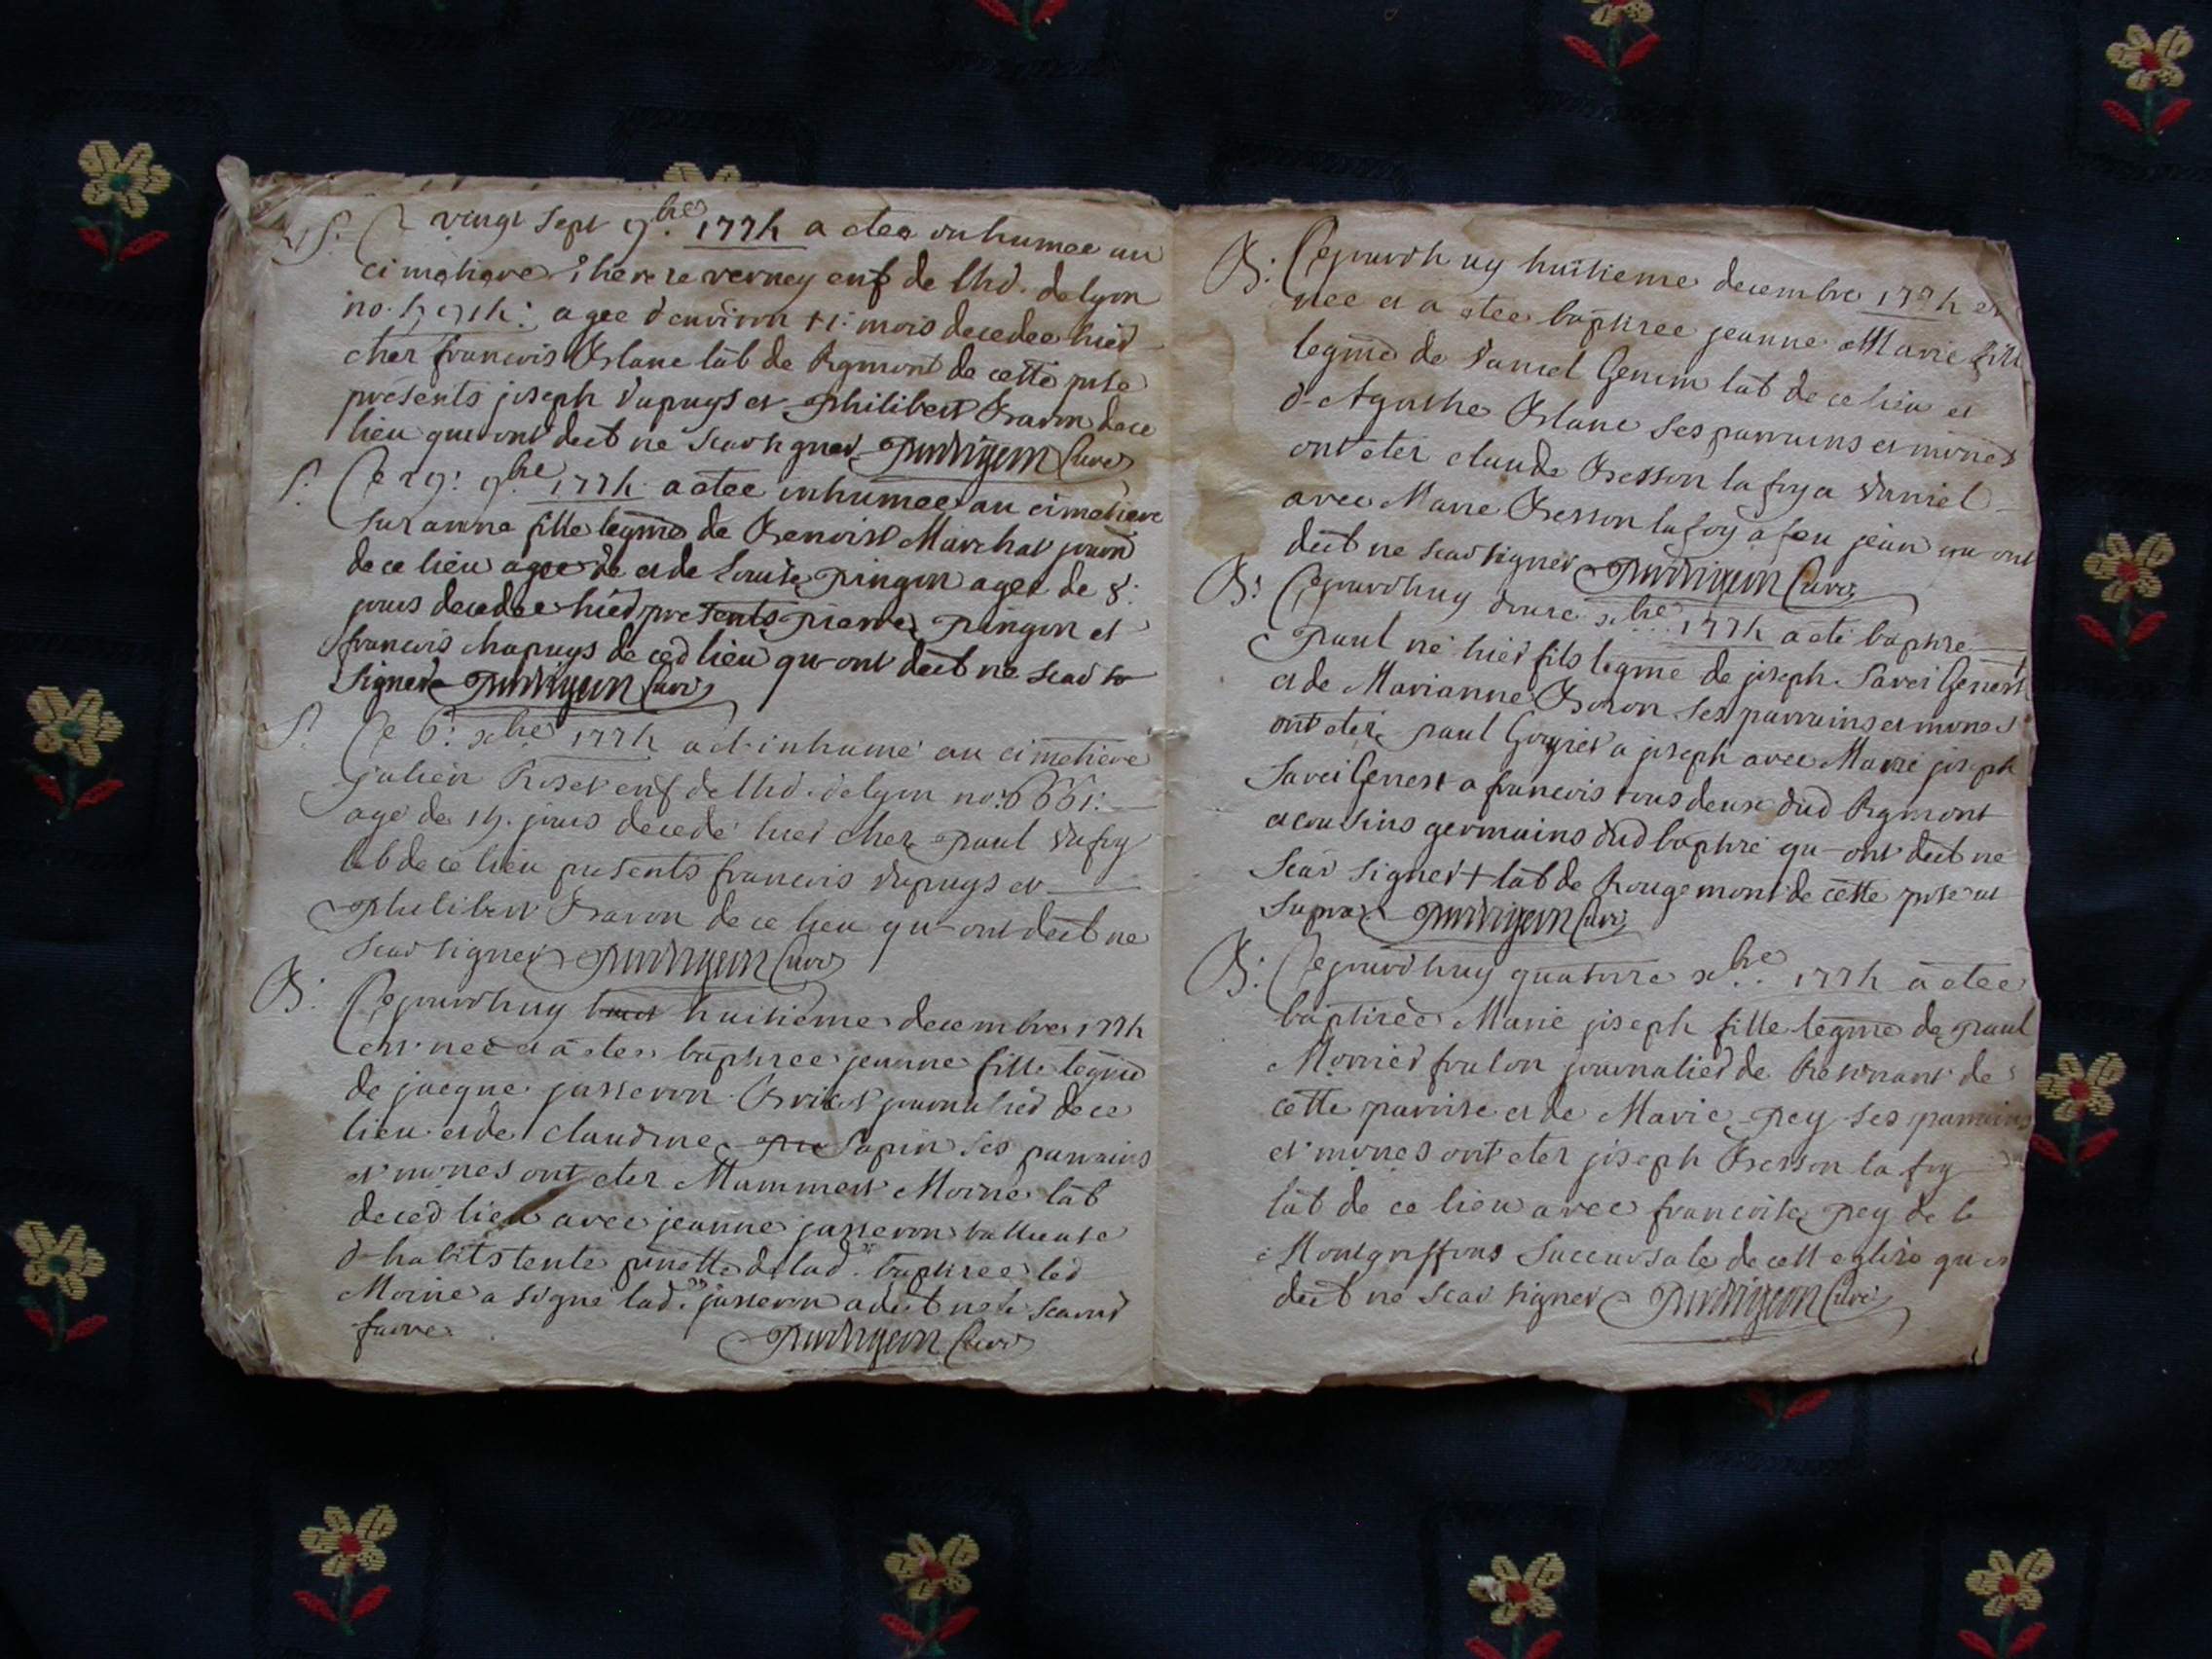 S. Ce vingt sept 9.bre 1774 a etee inhumee au
cimetiere therese verney enf de lhd. de lyon
agee d'environ mois decedee hier
chez francois Blanc lab de Rgmont de cette pse
presents joseph dupuys et philibert Baron de ce
lieu qui ont deub ne scav signer curé
S. Ce 29. 9.bre 1774 a etee inhumee au cimetiere
suzanne fille legme de Benoist Marchat journ
de ce lieu agee de et de Louise pingon agee de 8.
jours decedee hier presents pierre pingon et
francois chapuys de ced lieu qu-ont deub ne scav
signer curé
S. Ce 6. xbre 1774 a et inhumé au cimetiere
julien Roset enf de lhd. de lyon no. 6661.
agé de 14. jours decedé hier chez paul dufoy
lab de ce lieu presents francois dupuys et
philibert Baron de ce lieu qu-ont deub ne
scav signer curé
B. Cejourdhuy huitieme decembre 1774
est nee et a etee baptisee jeanne fille legme
de jacque jasseron journalier de ce
lieu et de claudine sapin ses parrains
et mones ont eter Mammert Moine lab
de ced lieu avec jeanne jasseron
d-habits tente de lad. baptisee led
Moine a signé lad. jasseron a deub ne le scavoir
faire curé
B. Cejourdhuy huitieme decembre 1774 est
nee et a etee baptisee jeanne Marie fille
legme de daniel Genin lab de ce lieu et
d-Agathe Blanc ses parrains et mones
ont eter claude Besson la foy a daniel
avec Marie Besson la foy a feu jean qu ont
deub ne scav signer curé
B. Cejourdhuy douze xbre 1774 a eté baptisé
paul né hier fils legme de joseph Savei Genest
et de Marianne Boron ses parrains et mones
ont eter paul a joseph avec Marie joseph
Savei Genest a francois tous deux dud Rgmont
et cousins germains dud baptisé qu-ont deub ne
scav signer + lab de Rougemont de cette pse ut
supra curé
B. Cejourdhuy quatorze xbre 1774 a etee
baptisee Marie joseph fille legme de paul
Monier foulon journalier de Resinans de
cette paroise et de Marie pey ses parrains
et mones ont eter joseph Besson la foy
lab de ce lieu avec francoise pey de
Montgriffons succursale de cett eglise qu
deub ne scav signer curé